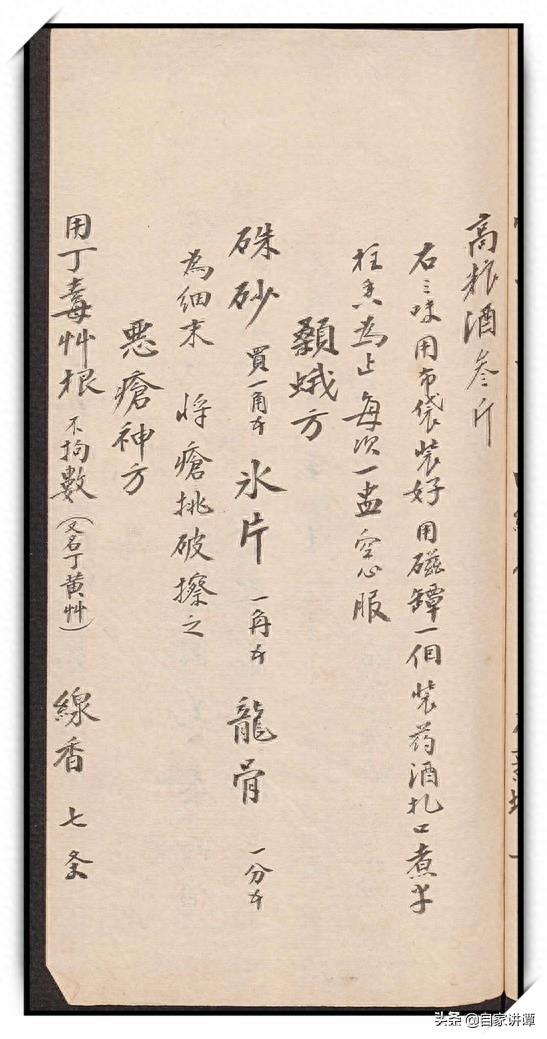 高粮酒叁斤
右三味用布袋装好用磁罈一個装药酒札口煮半
柱香為止每次一盅空心服
顙蛾方
硃砂 買一角 氷片 一角 龍骨 一分
為細末 將瘡挑破擦之
悪瘡神方
用丁毒艸根 不拘數（又名丁黄艸） 線香 七条
头条 @自家讲谭